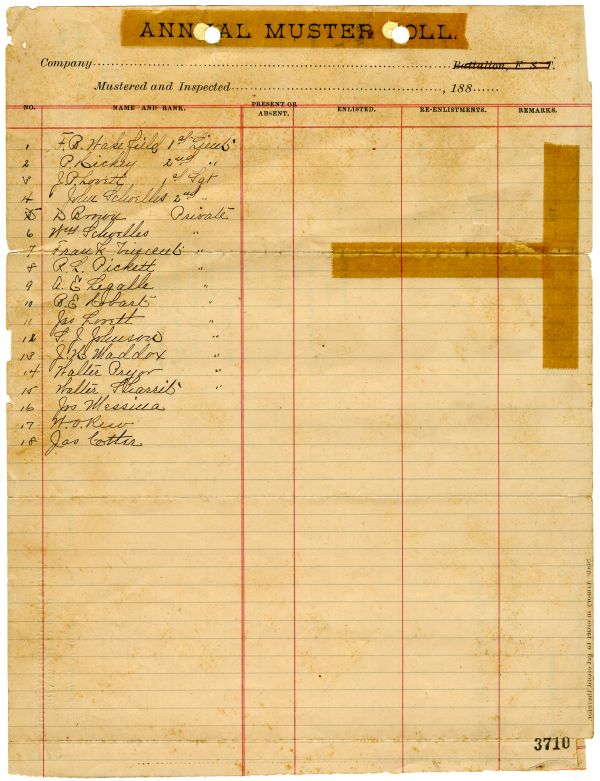 ANNUAL MUSTER ROLL.
Company Battalion, F. S. T.
Mustered and Inspected , 188
NO. NAME AND RANK. PRESENT OR ABSENT. ENLISTED. RE-ENLISTMENTS. REMARKS.
1 F. B. Wakefield 1st Lieut
2 P. Dickey 2nd "
3 J. P. Lovett 1st Sgt
4 John Schoelles 2nd "
5 D Brown Private
6 Wm Schoelles "
7 Frank Vincent "
8 R. L. Pickett "
9 A. E. Legalle "
10 B. E. Hobart "
11 Jas Lovett "
12 F. J. Johnson "
13 J. W. Maddox "
14 Walter Pryor "
15 Walter "
16 Jos Messina
17 W. O. Rew
18 Jas Cotter
3710